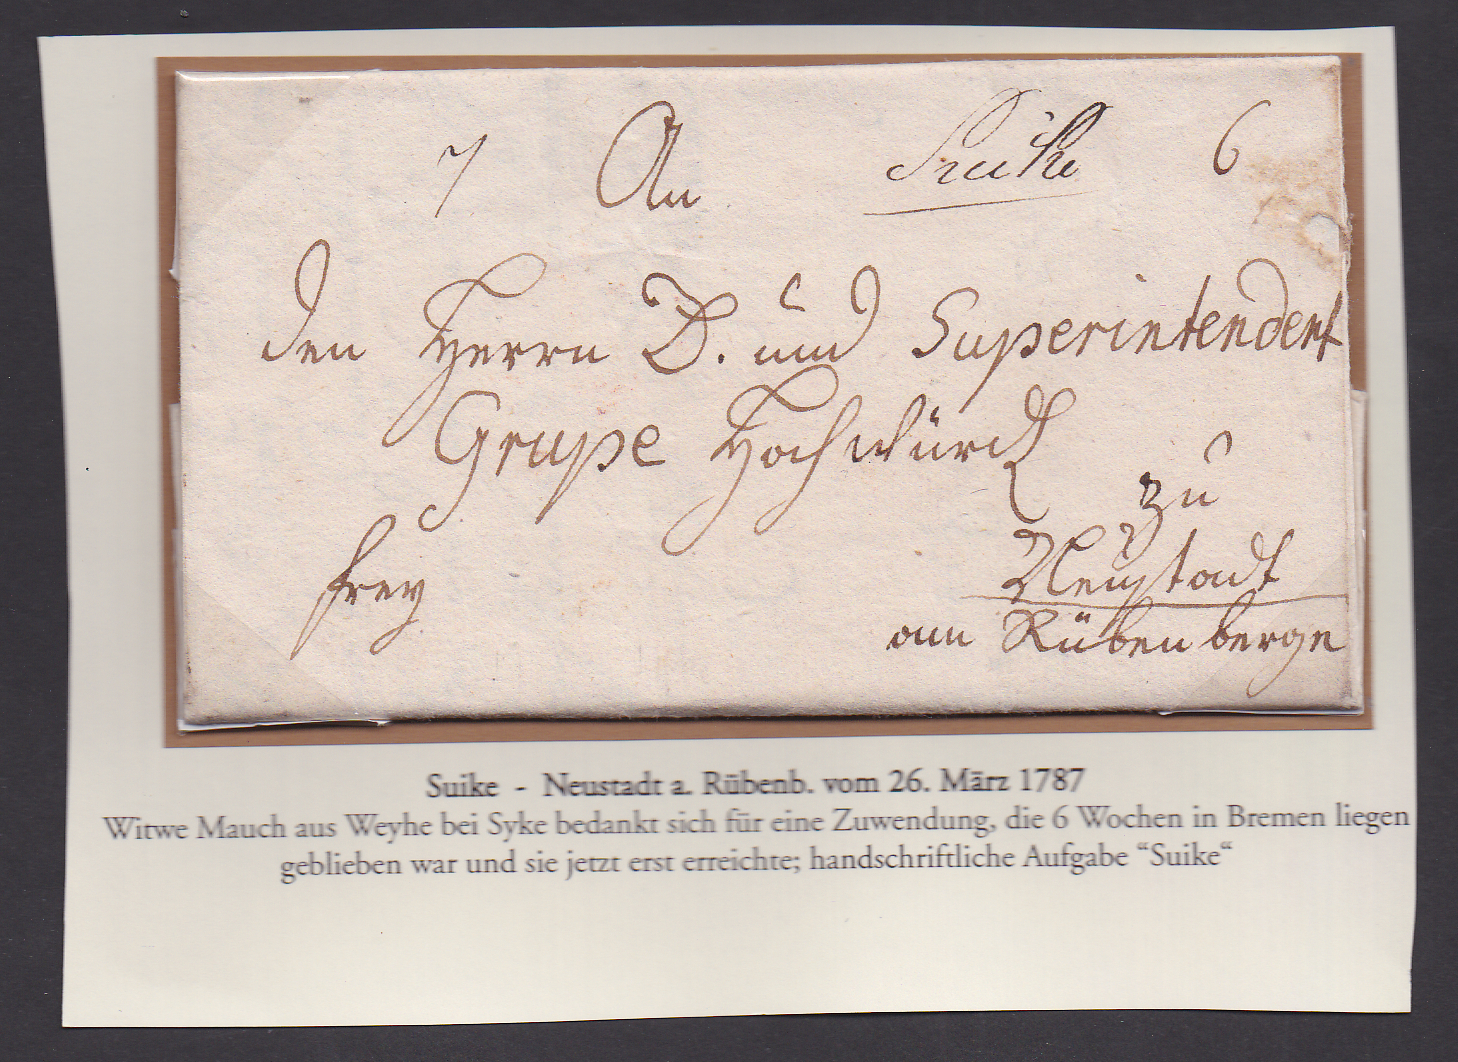 7 An Suike 6
den Herrn D. und Superintendent
Grupe Hochwürd
zu
frey Neustadt
am Rübenberge
Suike - Neustadt a. Rübenb. vom 26. März 1787
Witwe Mauch aus Weyhe bei Syke bedankt sich für eine Zuwendung, die 6 Wochen in Bremen liegen
geblieben war und sie jetzt erst erreichte; handschriftliche Aufgabe “Suike“